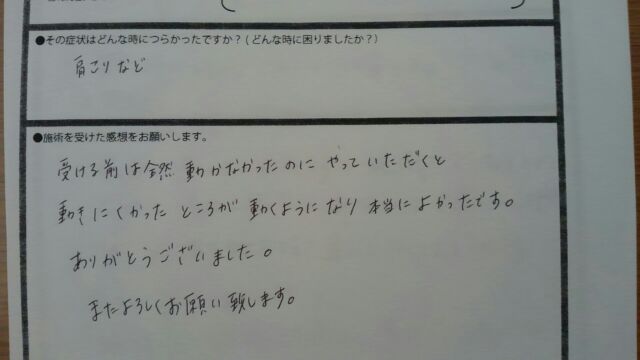 ●その症状はどんな時につらかったですか？(どんな時に困りましたか？)
肩こりなど
●施術を受けた感想をお願いします。
受ける前は全然動かなかったのにやっていただくと
動きにくかったところが動くようになり本当によかったです。
ありがとうございました。
またよろしくお願い致します。